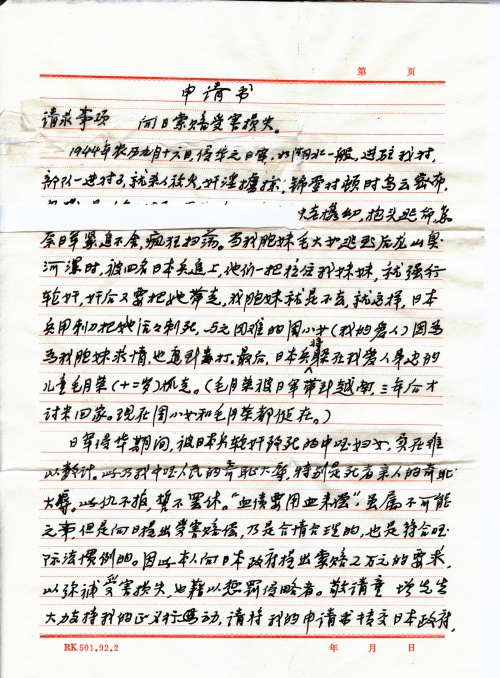 第 页
申请书
请求事项 向日索赔受害损失。
1944年农历九月十六日,侵华之日军,从湖北一般,进驻我村,
部队一进村子,就杀人放火,奸淫掳掠;锦堂村顿时乌云密布,
抱头逃命,
日军紧追不舍,疯狂扫荡。当我胞妹毛大女逃到后龙山奥
河滩时,被四名日本兵追上,他们一把拉住我妹妹,就强行
轮奸,奸后又要把她带走,我胞妹就是不去,就这样,日本
兵用刺刀把她活活刺死,与之同难的周小女(我的爱人)因为
为我胞妹求情,也遭到毒打,最后,日本兵将躲在我爱人身边的
儿童毛月英(十二岁)抓走。(毛月英被日军带到越南,三年后才
讨米回家。现在周小女和毛月英都健在。)
日军侵华期间,被日本兵轮奸致死的中国妇女,实在难
以数计。此乃我中国人民的奇耻大辱,特别是死者亲人的奇耻
大辱。此仇不报,誓不罢休。“血债要用血来偿”虽属不可能
之事,但是向日提出受害赔偿,乃是合情合理的,也是符合国
际法惯例的。因此本人向日本政府提出索赔2万元的要求,
以弥补受害损失,也藉以惩罚侵略者。敬请童 增先生
大力支持我的正义行动,请将我的申请书转交日本政府,
RK 501.92.2 年 月 日